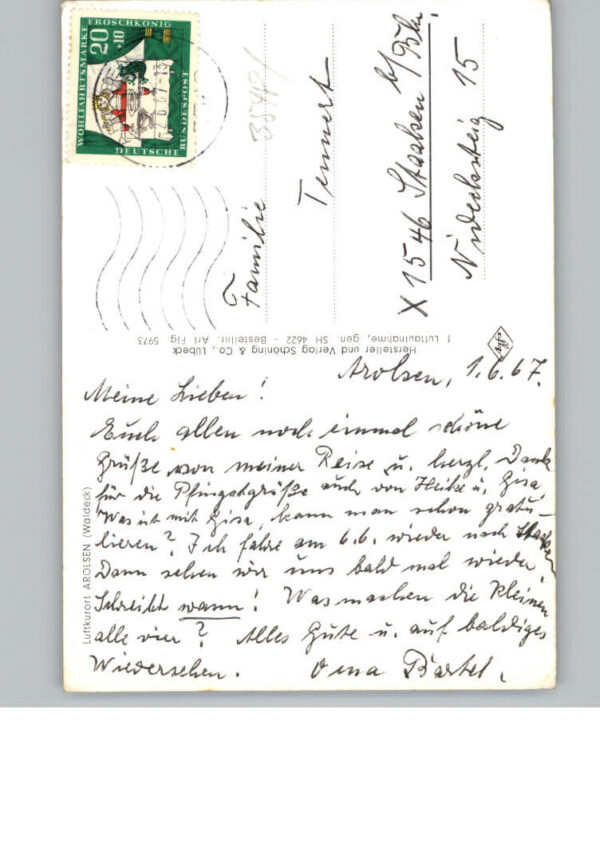 WOHLFAHRTSMARKE
FROSCHKÖNIG
20
+10
DEUTSCHE
BUNDESPOST
3540/
Familie
Tennert
X 1546 Staaken b/
Niedersteig 15
Hersteller und Verlag Schöning & Co., Lübeck
f. Luftaufnahme, gen. SH 4622 - Bestellnr. Arl Flg 5973
Luftkurort AROLSEN (Waldeck)
Arolsen, 1.6.67.
Meine Lieben!
Euch allen noch einmal schöne
Grüße von meiner Reise u. herzl. Dank
für die Pfingstgrüße auch von Heike u. Gisa
Was ist mit Gisa, kann man schon gratu-
lieren? Ich fahre am 6.6. wieder nach
Dann sehen wir uns bald mal wieder
Schreibt wann! Was machen die Kleinen
alle vier? Alles Gute u. auf baldiges
Wiedersehen. Oma Bartel.